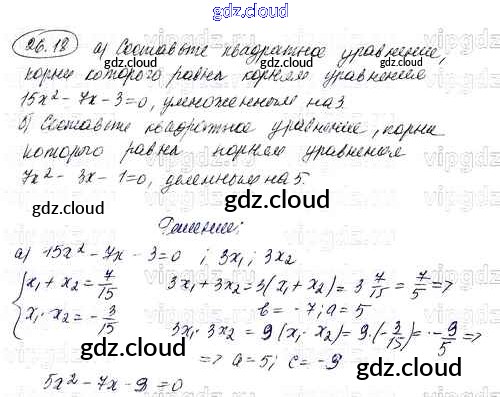 gdz.cloud
26.18 а) Составьте квадратное уравнение,
корни которого равны корням уравнения
15x² - 7x - 3 = 0, умноженным на 3.
б) Составьте квадратное уравнение, корни
которого равны корням уравнения
7x² - 3x - 1 = 0, деленным на 5.
gdz.cloud
Решение:
а) 15x² - 7x - 3 = 0 ; 3x₁ ; 3x₂
{ x₁ + x₂ = 7/15   3x₁ + 3x₂ = 3(x₁ + x₂) = 3 · 7/15 = 7/5 =>
b = -7; a = 5
x₁ · x₂ = -3/15   3x₁ · 3x₂ = 9(x₁ · x₂) = 9 · (-3/15) = -9/5 =>
=> a = 5; c = -9
gdz.cloud
5x² - 7x - 9 = 0